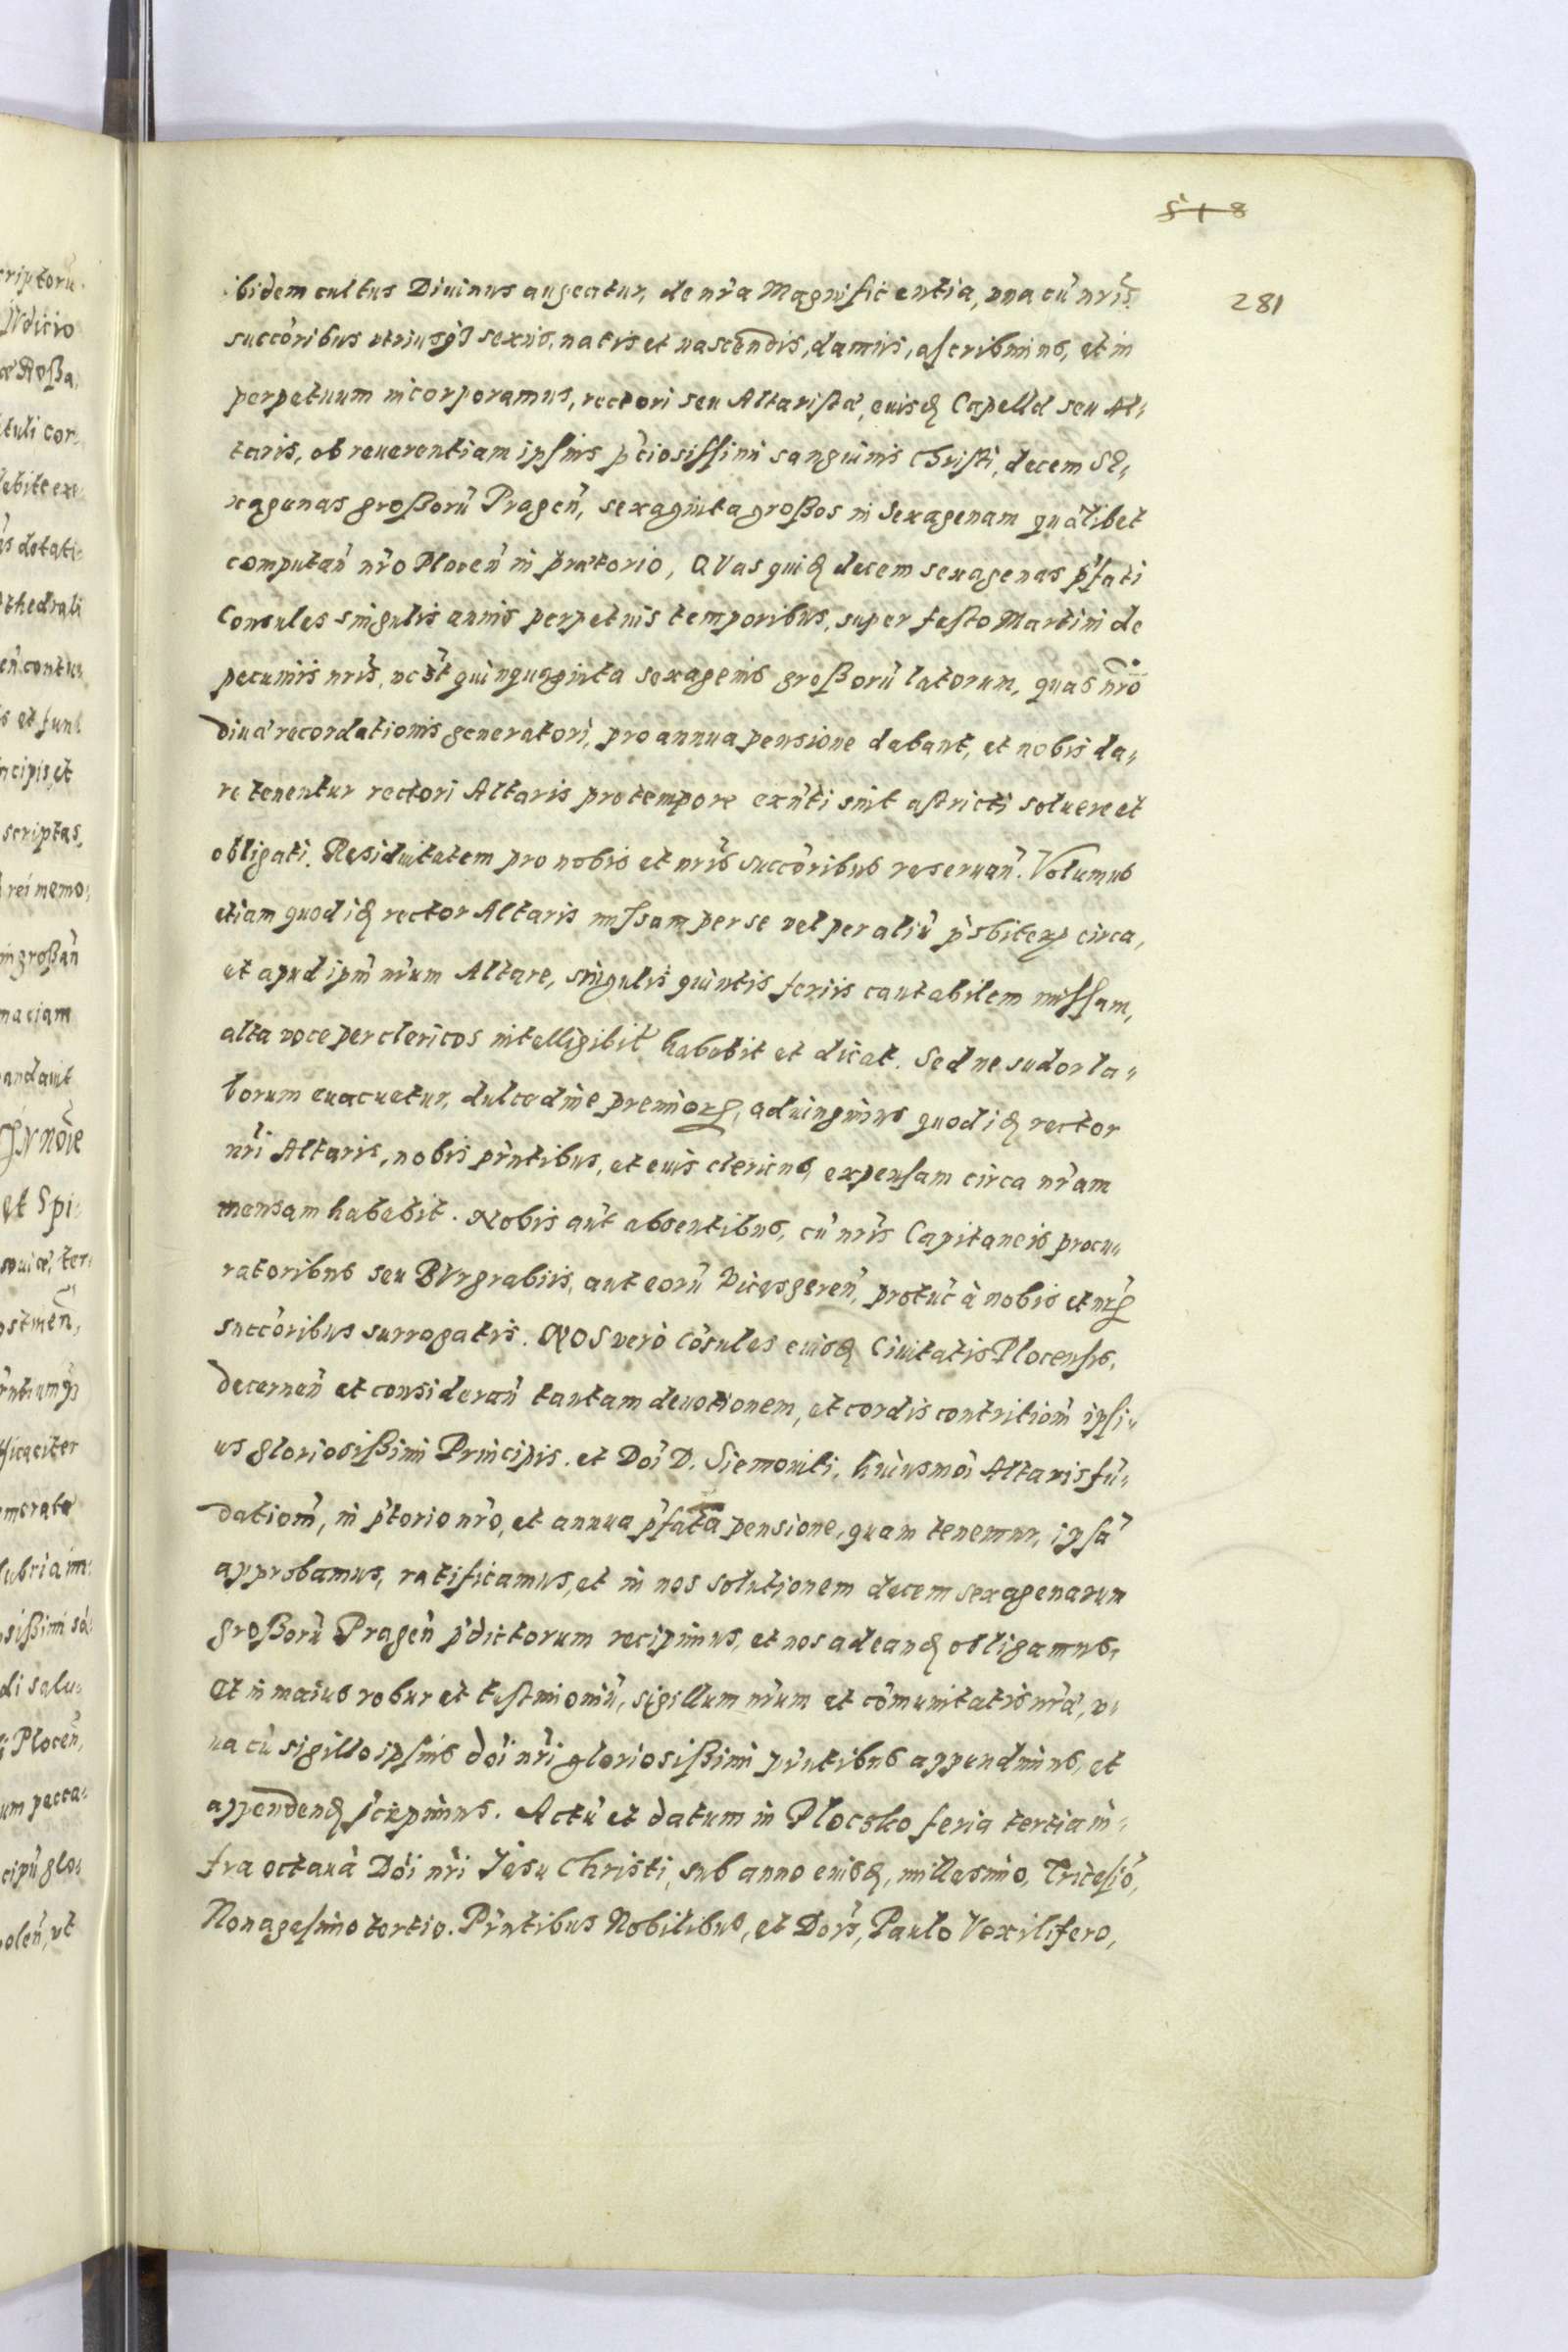 518
281
ibidem cultus Diuinus augeatur, de nr̃a Magnificentia, vna cũ nr̃is
succõribus vtriusq3 sexus, natis et nascendis, damus, ascribimus, et in
perpetuum incorporamus, rectori seu Altaristæ, euisꝗ Capellæ seu Al-
taris, ob reuerentiam ipsius p̃ciosissimi sanguinis Christi, decem Se-
xagenas großorũ Pragen̄, sexaginta großos in Sexagenam quãlibet
computan̄ nr̃o Plocen̄ in prætorio, QVas quiꝗ decem sexagenas p̃fati
Consules singulis annis perpetuis temporibus, super festo Martini de
pecuniis nr̃is, quinquaginta sexagenis großorũ latorum, quas nr̃o
diuæ recordationis generatori, pro annua pensione dabant, et nobis da-
re tenentur rectori Altaris pro tempore exñti sint astricti soluere et
obligati. Residuitatem pro nobis et nr̃is succõribus reseruan̄. Volumus
etiam quod iꝗ rector Altaris missam per se vel per aliũ p̃sbiterꝝ circa,
et apud ipm̃ nr̃um Altare, singulis quintis feriis cantabilem missam,
alta voce per clericos intelligibilr̃ habebit et dicat. Sed ne sudor la-
borum euacuetur, dulcedine premiorꝝ, aduingimus quod iꝗ rector
nr̃i Altaris, nobis p̃ntibus, et euis clericus, expensam circa nr̃am
mensam habebit. Nobis aut̃ absentibus, cũ nr̃is Capitaneis procu-
ratoribus seu BVrgrabiis, aut eorũ Vicesgeren̄, protũc à nobis et nrꝝ
succõribus surrogatis. NOS verò Cõsules euisꝗ Ciuitatis Plocensis,
decernen̄ et consideran̄ tantam deuotionem, et cordis contritiom̃ ipsi-
us gloriosißimi Principis. et Dõi D. Siemouiti, huiusmõi Altaris fũ-
datiom̃, in p̃torio nr̃o, et annua p̃fata pensione, quam tenemur, ipsã
approbamus, ratificamus, et in nos solutionem decem sexagenarum
großorũ Pragen̄ p̃dictorum recipimus, et nos ad eanꝗ obligamus,
Et in maius robur et testimoniũ, sigillum nr̃um et cõmunitatis nr̃æ, v-
na cũ sigillo ipsius dõi nr̃i gloriosißimi p̃ntibus appendimus, et
appendenꝗ p̃cepimus. Actũ et datum in Plocsko feria tertia in-
fra octauã Dõi nr̃i Jesu Christi, sub anno euisꝗ, millesimo, Tricesiõ,
Nonagesimo tertio. P̃ntibus Nobilibus, et Dõis, Paulo Vexilifero,